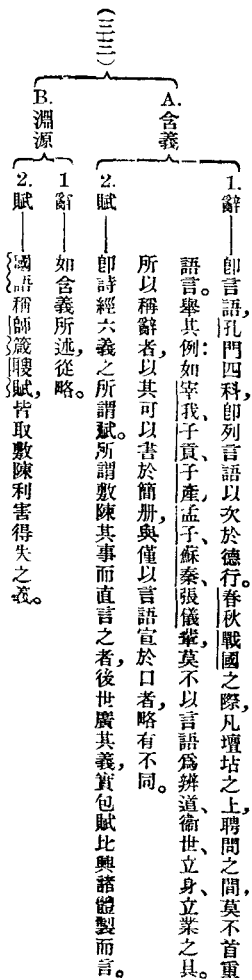 （三三）
A.含義
1.辭——卽言語，孔門四科，卽列言語以次於德行。春秋戰國之際，凡壇坫之上，聘問之間，莫不首重
語言。舉其例：如宰我、子貢、子產、孟子、蘇秦、張儀輩，莫不以言語爲辨道、衞世、立身、立業之具。
所以稱辭者，以其可以書於簡册，與僅以言語宣於口者，略有不同。
2.賦——卽詩經六義之所謂賦。所謂敷陳其事而直言之者，後世廣其義，實包賦比興諸體製而言。
B.淵源
1辭——如含義所述，從略。
2.賦——國語稱師箴瞍賦，皆取敷陳利害得失之義。